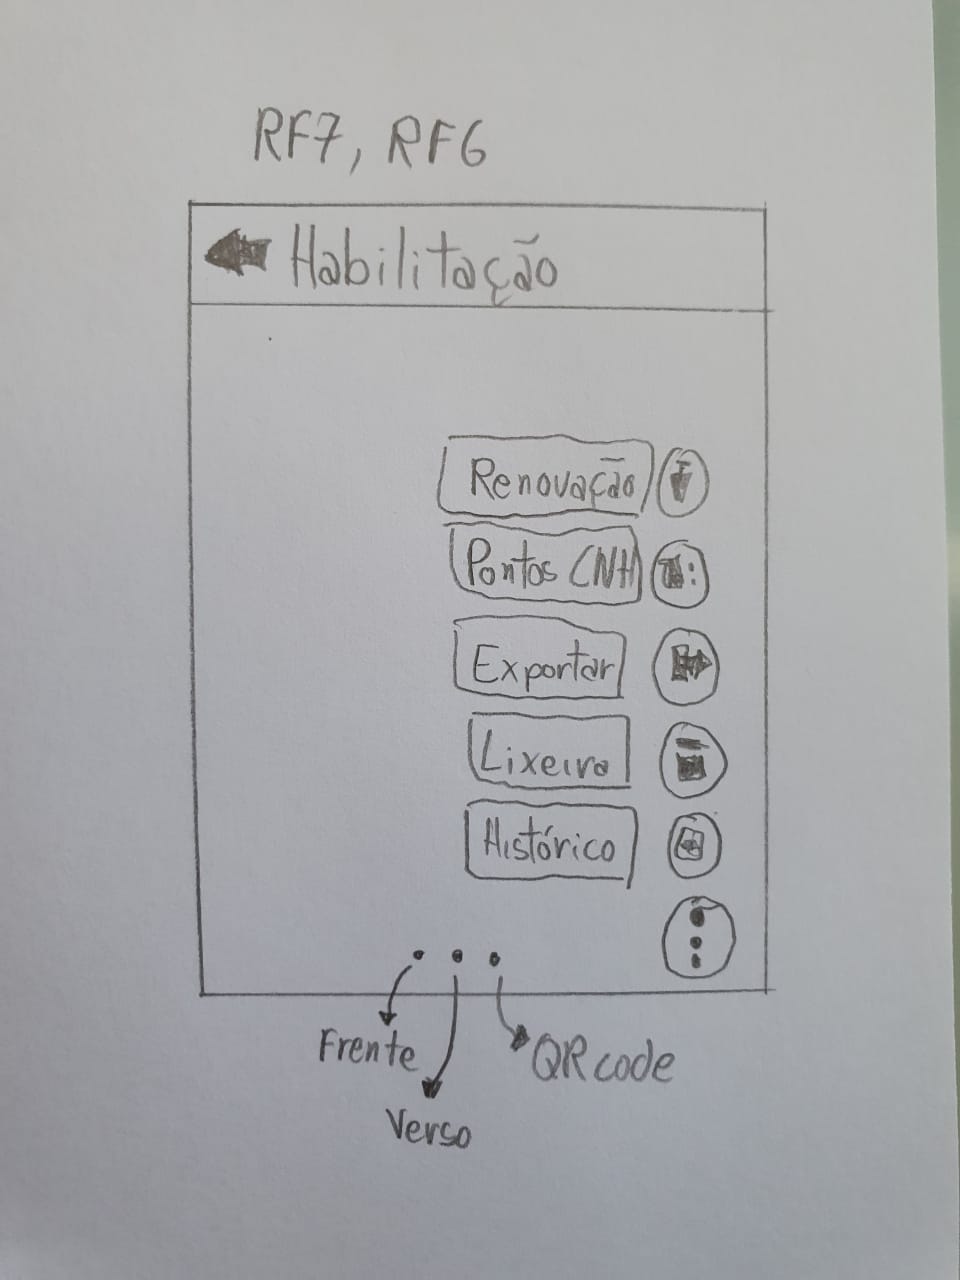 RF7, RF6
Habilitação
Renovação
Pontos CNH
Exportar
Lixeira
Histórico
Frente
QR code
Verso